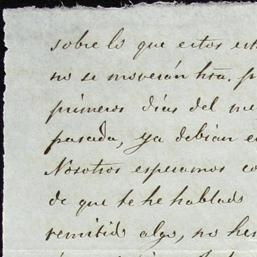 sobre lo que estos est
no se moverán hta. p
primeros días del me
pasada, ya debian e
Nosotros esperamos co
de que te he hablado
remitido algo, no he